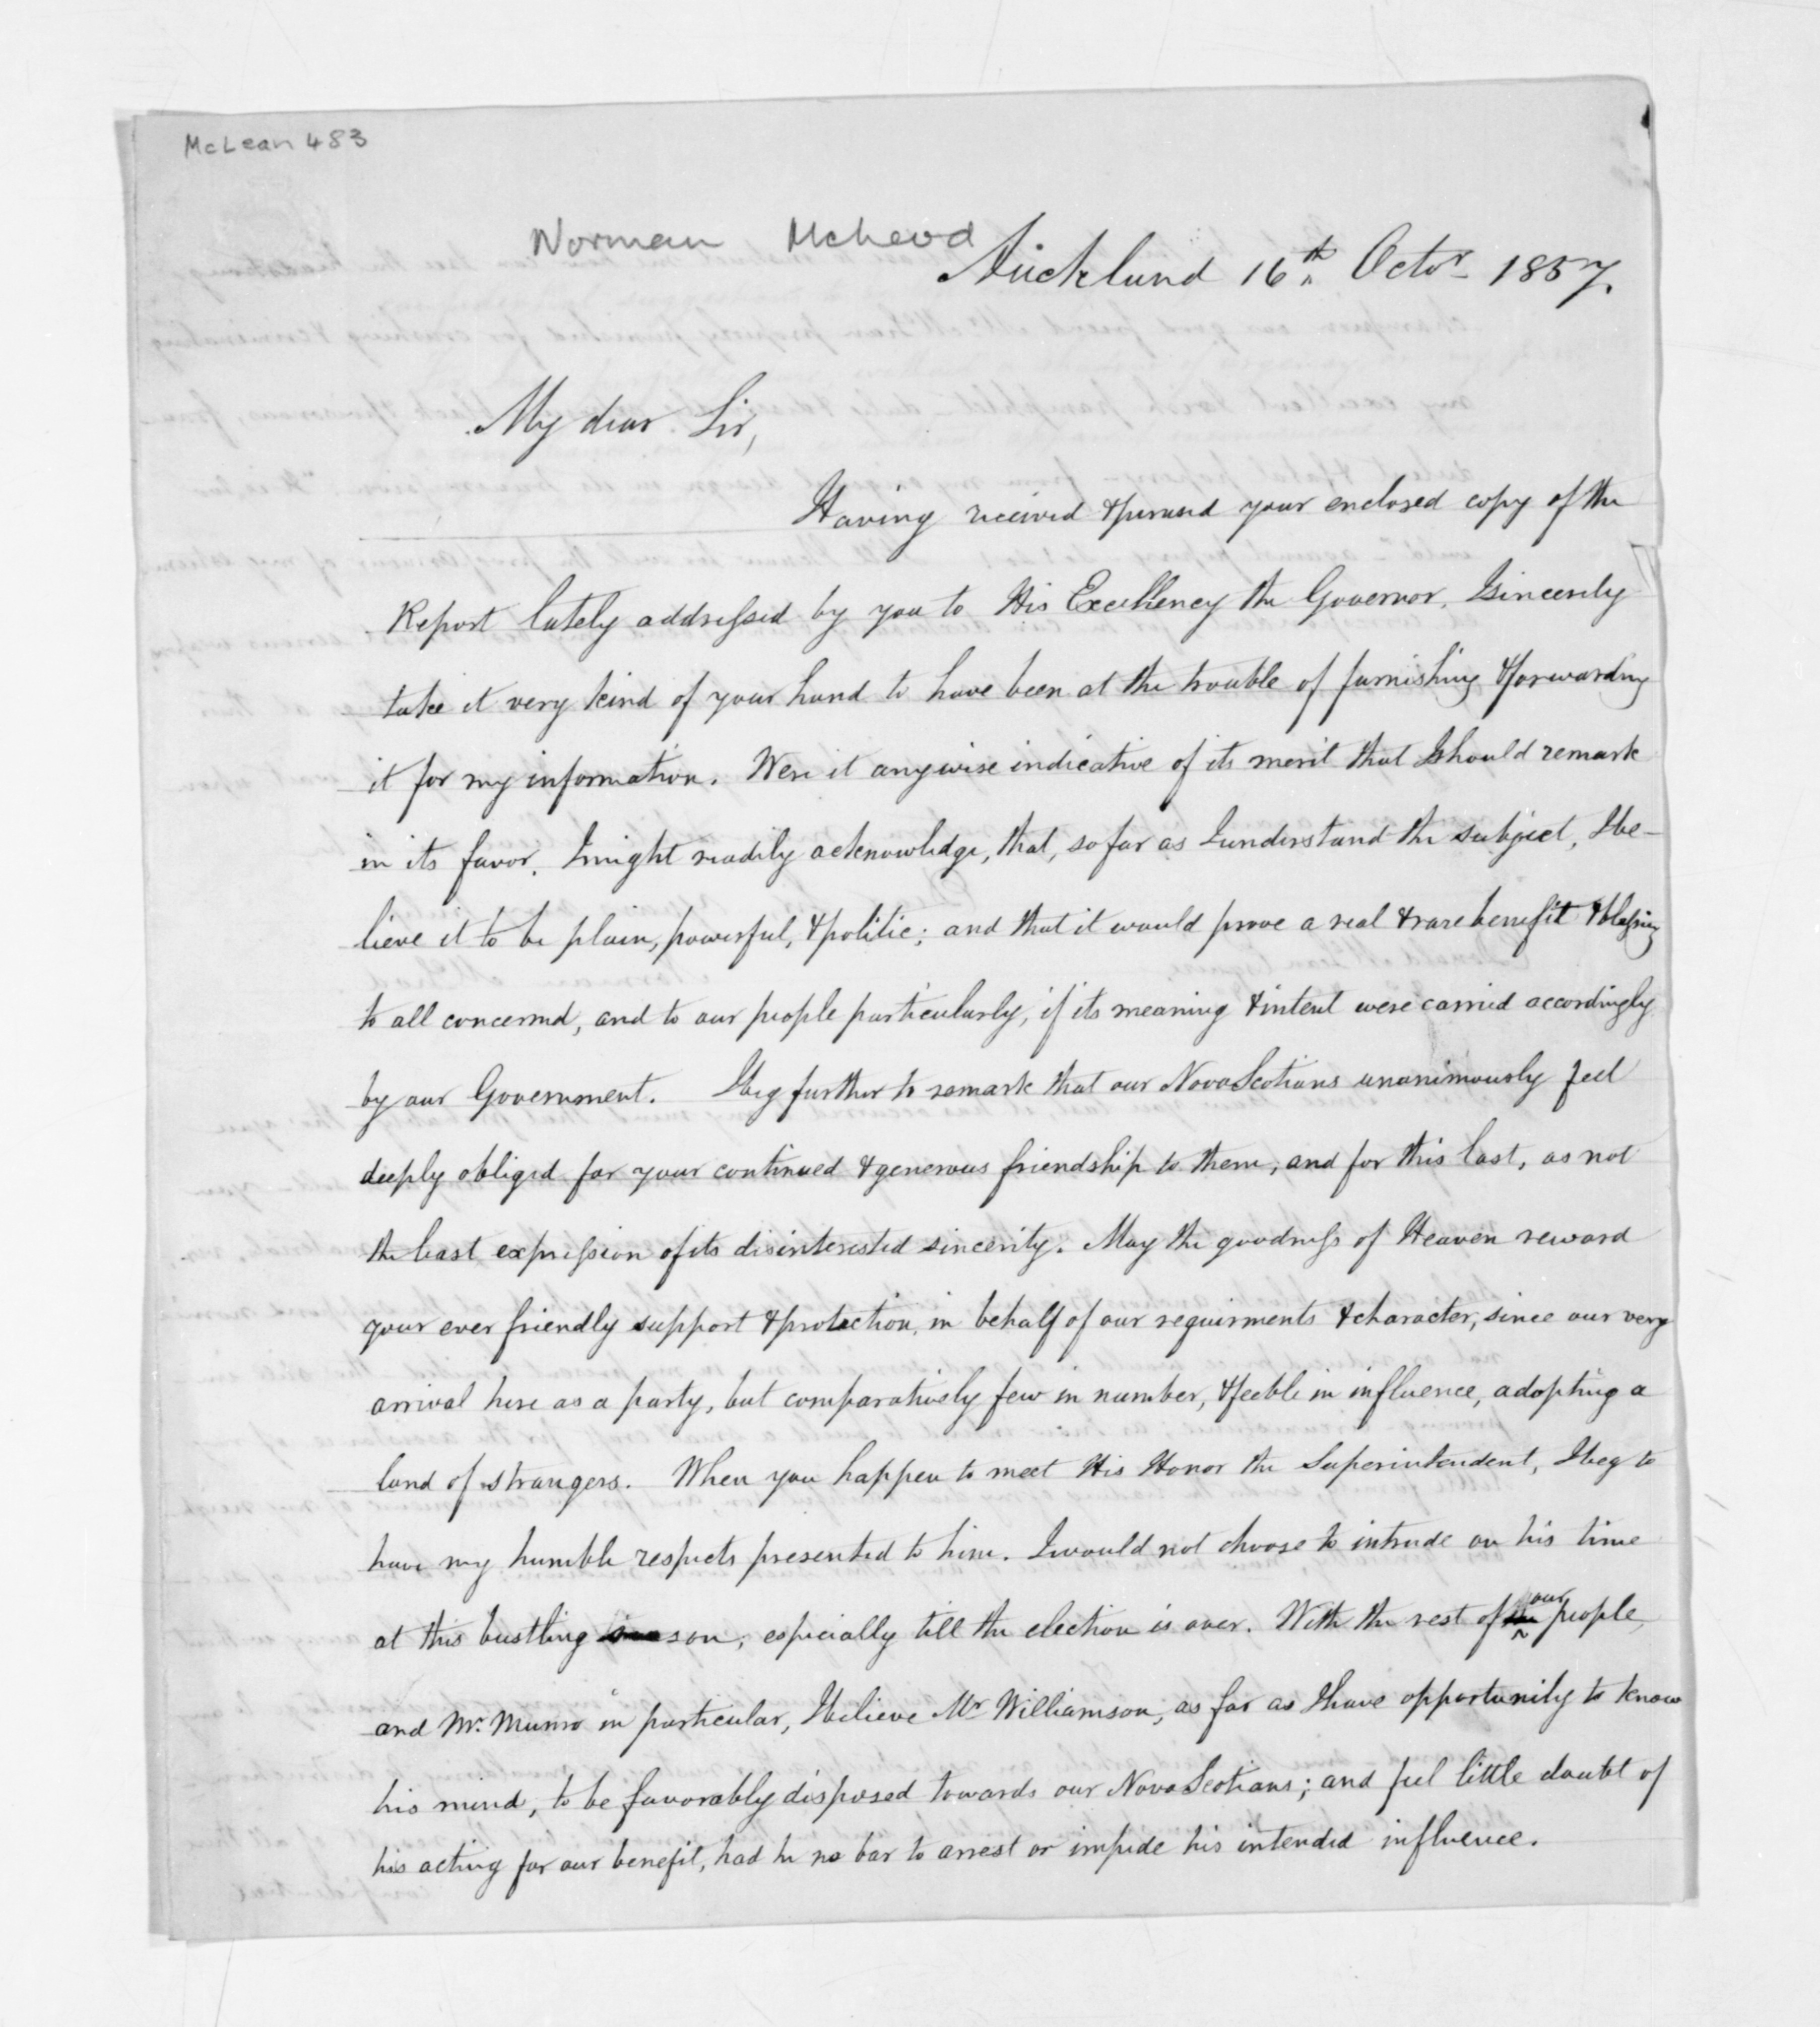 McLean 483
Norman McLeod
Auckland 16th Octor 1857.
My dear Sir,
Having received & perused your enclosed copy of the
Report lately addressed by you to His Excellency the Governor, I sincerely
take it very kind of your hand to have been at the trouble of furnishing & forwarding
it for my information. Were it anywise indicative of its merit that I should remark
in its favor, I might readily acknowledge, that, so far as I understand the subject, I be-
lieve it to be plain, powerful, & politic; and that it would prove a real & rare benefit & blessing
to all concerned, and to our people particularly, if its meaning & intent were carried accordingly
by our Government. I beg further to remark that our Nova Scotians unanimously feel
deeply obliged for your continued & generous friendship to them, and for this last, as not
the least expression of its disinterested sincerity. May the goodness of Heaven reward
your ever friendly support & protection, in behalf of our requirments & character, since our very
arrival here as a party, but comparatively few in number, & feeble in influence, adopting a
land of strangers. When you happen to meet His Honor the Superintendent, I beg to
have my humble respects presented to him. I would not choose to intrude on his time
at this bustling season, especially till the election is over. With the rest of our people,
and Mr. Munro in particular, I believe Mr Williamson, as far as I have opportunity to know
his mind, to be favorably disposed towards our Nova Scotians; and feel little doubt of
his acting for our benefit, had he no bar to arrest or impede his intended influence.